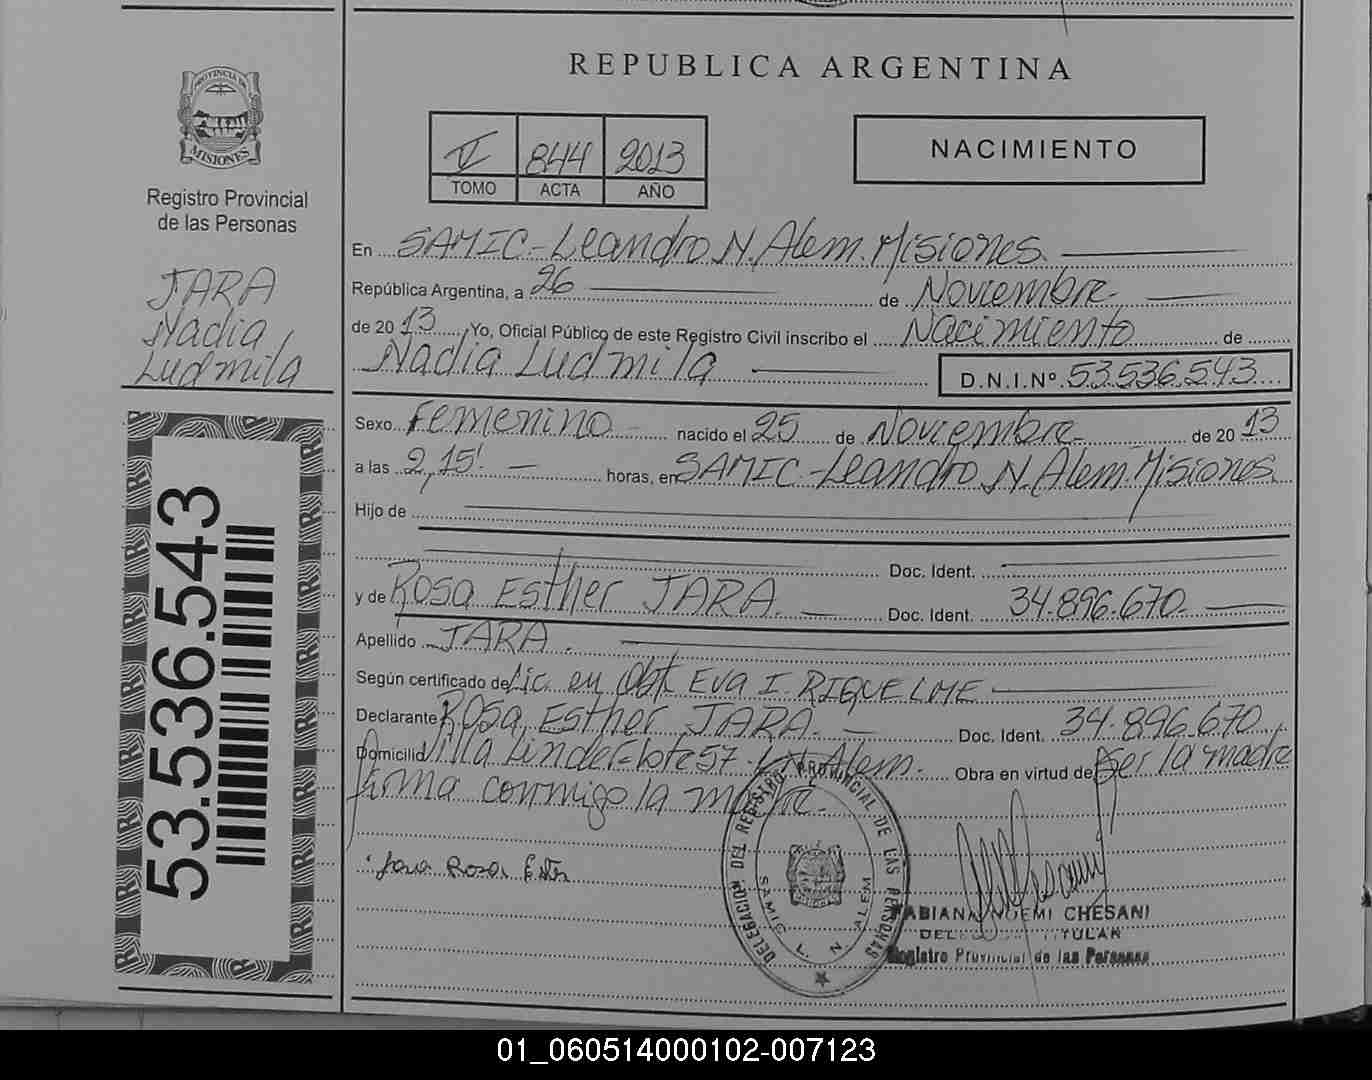 REPUBLICA ARGENTINA
PROVINCIA DE
MISIONES
Registro Provincial
de las Personas
JARA
Nadia
Ludmila
53.536.543
V 844 2013
TOMO ACTA AÑO
NACIMIENTO
En SAMIC.-Leandro N. Alem. Misiones.
República Argentina, a 26 de Noviembre
de 2013 Yo, Oficial Público de este Registro Civil inscribo el Nacimiento de
Nadia Ludmila D.N.I.Nº 53.536.543
Sexo Femenino nacido el 25 de Noviembre de 2013
a las 2,15' horas, en SAMIC.-Leandro N. Alem. Misiones
Hijo de
Doc. Ident.
y de Rosa Esther JARA. Doc. Ident. 34.896.670
Apellido JARA.
Según certificado de Lic. en Obt. Eva I. RIQUELME
Declarante Rosa Esther JARA. Doc. Ident. 34.896.670
Domicilio Villa Linder-lote 57. L.N. Alem. Obra en virtud de Ser la madre
firma conmigo la madre.
Jara Rosa Ester
DELEGACION DEL REGISTRO PROVINCIAL DE LAS PERSONAS
SAMIC L. N. ALEM
FABIANA NOEMI CHESANI
DELEGADA TITULAR
Registro Provincial de las Personas
01_060514000102-007123